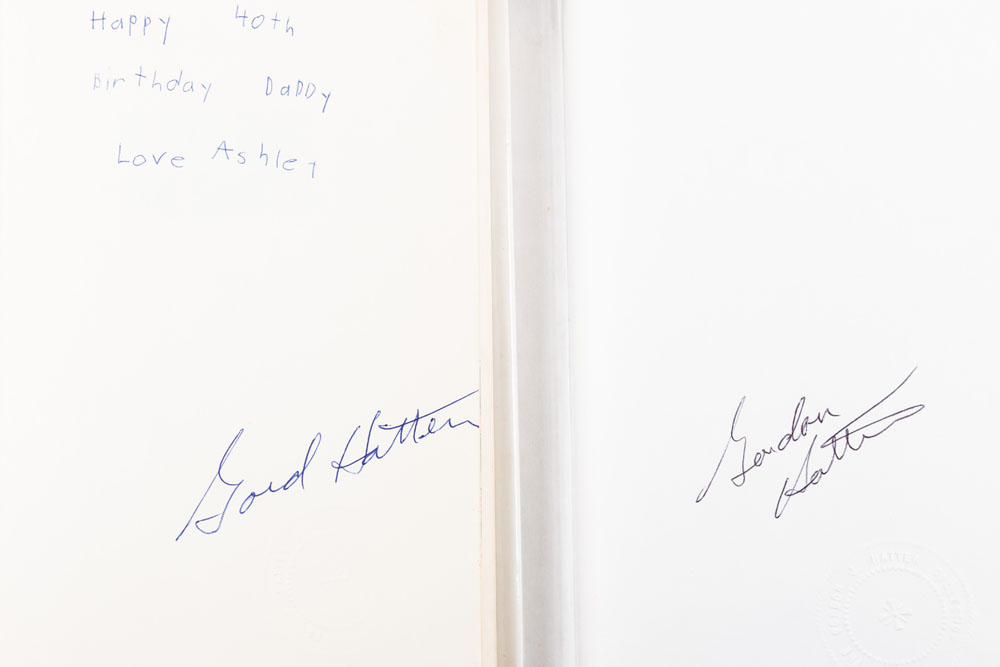 Happy 40th
Birthday DaDDy
Love Ashley
Gord Hatten
Gordon
Hatten
HATTEN